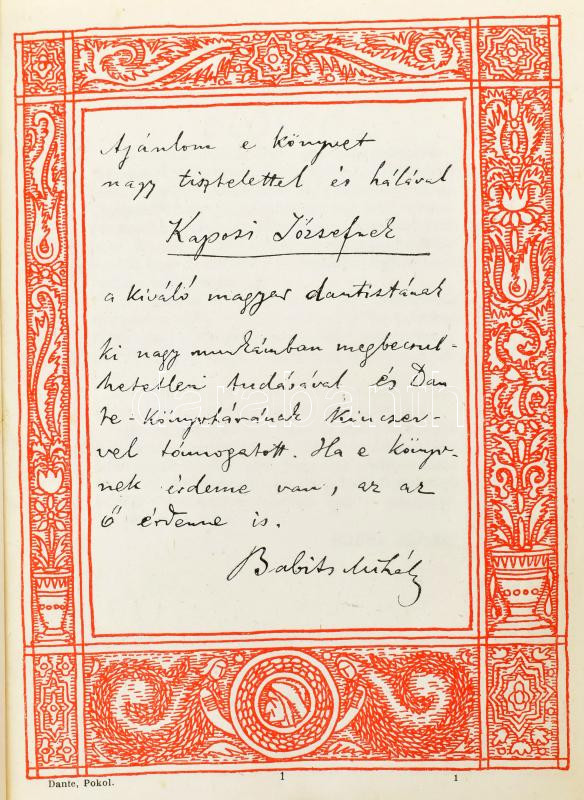 Ajánlom e könyvet
nagy tisztelettel és hálával
Kaposi Józsefnek
a kiváló magyar dantistának
ki nagy munkámban megbecsül-
hetetlen tudásával és Dan
te-könyvtárának kincsei-
vel támogatott. Ha e könyv-
nek érdeme van, az az
Ő érdeme is.
Babits Mihály
Dante, Pokol.
1
1